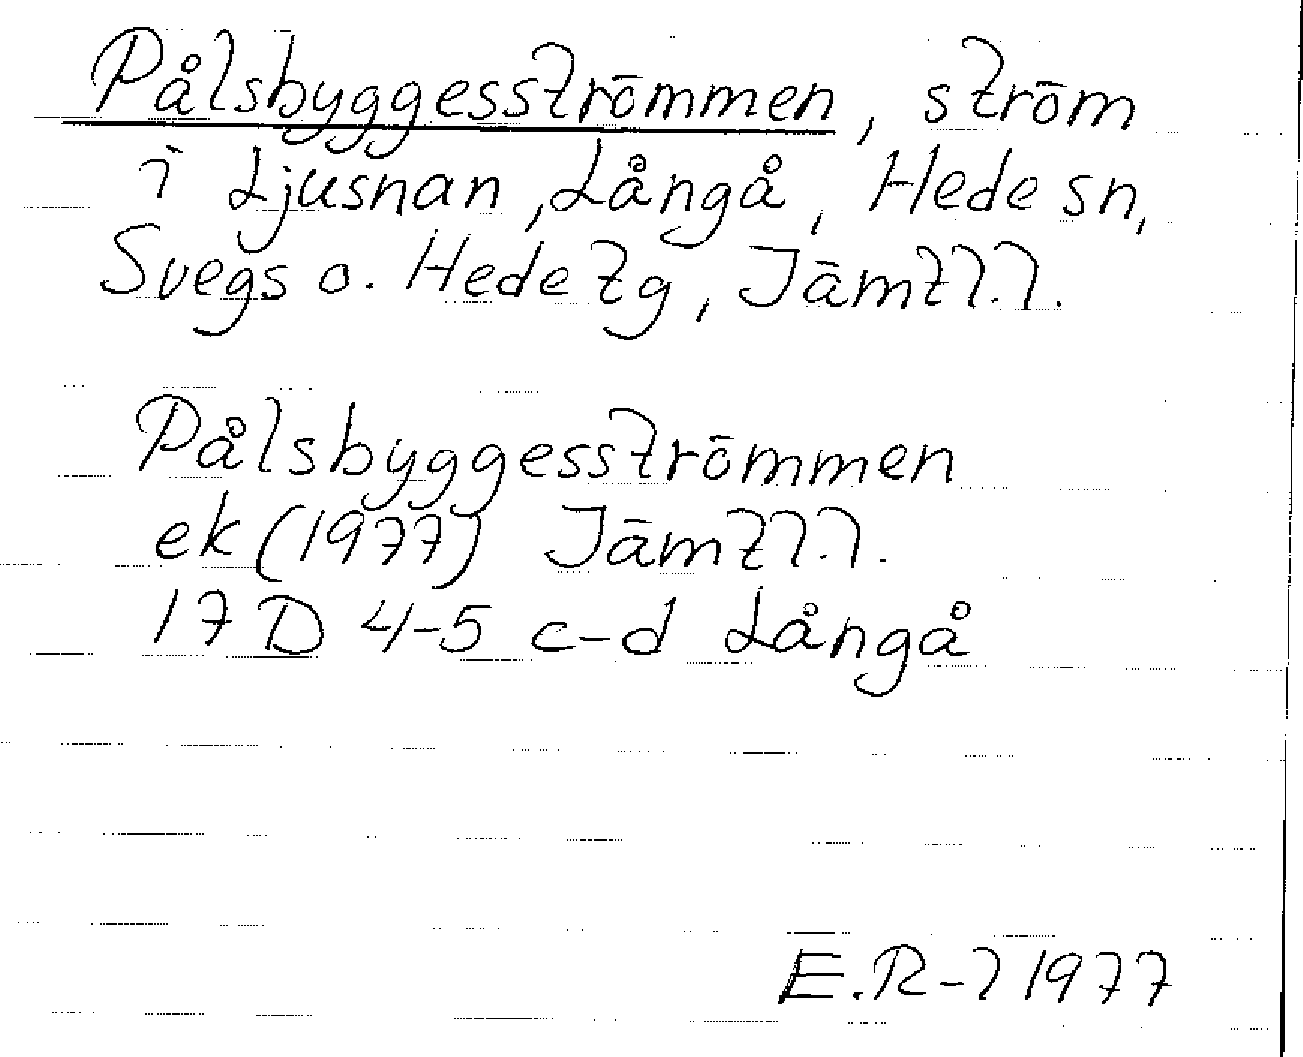 Pålsbyggesströmmen, ström
i Ljusnan, Långå, Hede sn,
Svegs o. Hede tg, Jämtl.l.
Pålsbyggesströmmen
ek (1977) Jämtl.l.
17D 4-5 c-d Långå
E.R-l 1977